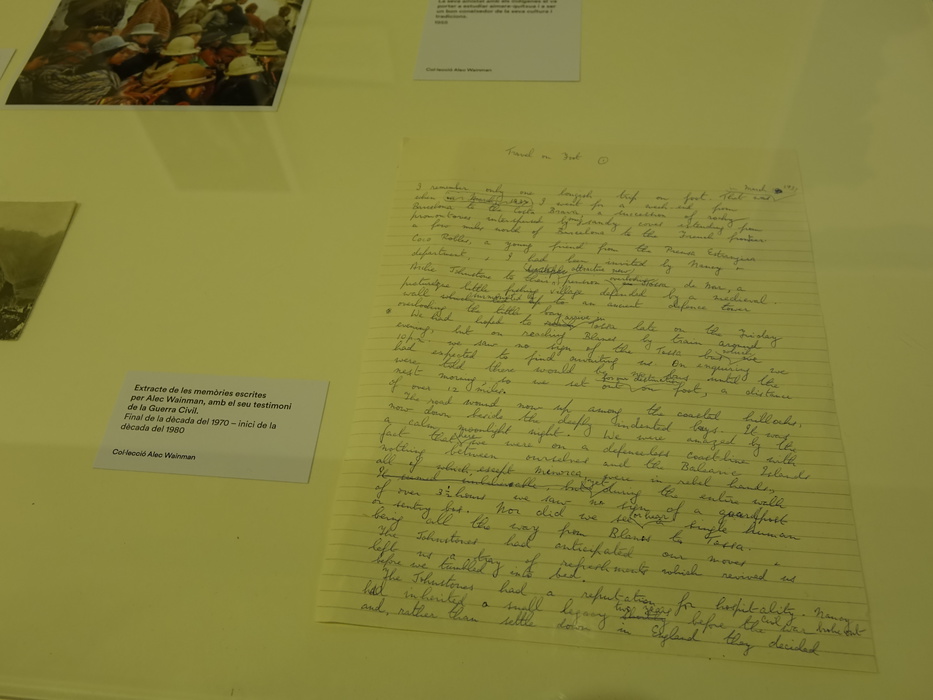 portar a estudiar aimara-quítxua i a ser
un bon coneixedor de la seva cultura i
tradicions.
Col·lecció Alec Wainman
Travel on Foot ①
March
I remember only one longish trip on foot. That was
when in March 1937 I went for a week-end from
Barcelona to the Costa Brava, a succession of rocky
promontories interspersed by sandy coves extending from
a few miles north of Barcelona to the French frontier.
a young friend from the Prensa Extranjera
department, & I had been invited by Nancy &
Archie Johnstone to their pension Tossa de Mar, a
picturesque little fishing village defended by a medieval
wall up to an ancient defence tower
overlooking the little bay
We had hoped to arrive in Tossa late on the Friday
evening, but on reaching Blanes by train around
10 p.m. we saw no sign of the Tossa bus which we
had expected to find awaiting us. On enquiring we
were told there would be no bus until the
next morning, so we set out on foot, a distance
of over 12 miles.
The road wound now up among the coastal hillocks,
now down beside the deeply indented bays. It was
a calm moonlight night. We were amazed by the
fact that we were on a defenceless coast-line with
nothing between ourselves and the Balearic Islands
all of which, except Menorca, were in rebel hands,
It seemed unbelievable, but yet during the entire walk
of over 3½ hours, we saw no sign of a guardpost
or sentry box. Nor did we see or hear a single human
being all the way from Blanes to Tossa.
The Johnstones had anticipated our moves &
left us a tray of refreshments which revived us
before we tumbled into bed.
The Johnstones had a reputation for hospitality. Nancy
had inherited a small legacy two years before the Civil War broke out
and, rather than settle down in England they decided
Extracte de les memòries escrites
per Alec Wainman, amb el seu testimoni
de la Guerra Civil.
Final de la dècada del 1970 – inici de la
dècada del 1980
Col·lecció Alec Wainman